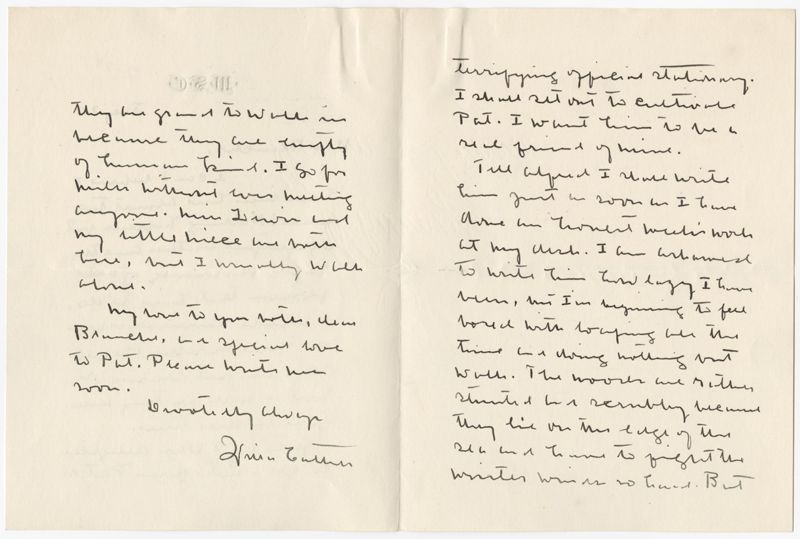 terrifying official stationary.
I shall set out to cultivate
Pat. I want him to be a
real friend of mine.
Tell Alfred I shall write
him just as soon as I have
done an honest week's work
at my desk. I am ashamed
to write him how lazy I have
been, but I'm beginning to feel
bored with loafing all the
time and doing nothing but
walk. The woods are rather
stunted and scrubbly because
they lie on the edge of the
sea and have to fight the
winter winds so hard. But
they are grand to walk in
because they are empty
of human kind. I go for
miles without ever meeting
anyone. Miss Lewis and
my little niece are both
here, but I usually walk
alone.
My love to you both, dear
Blanche, and special love
to Pat. Please write me
soon.
Devotedly always
Willa Cather